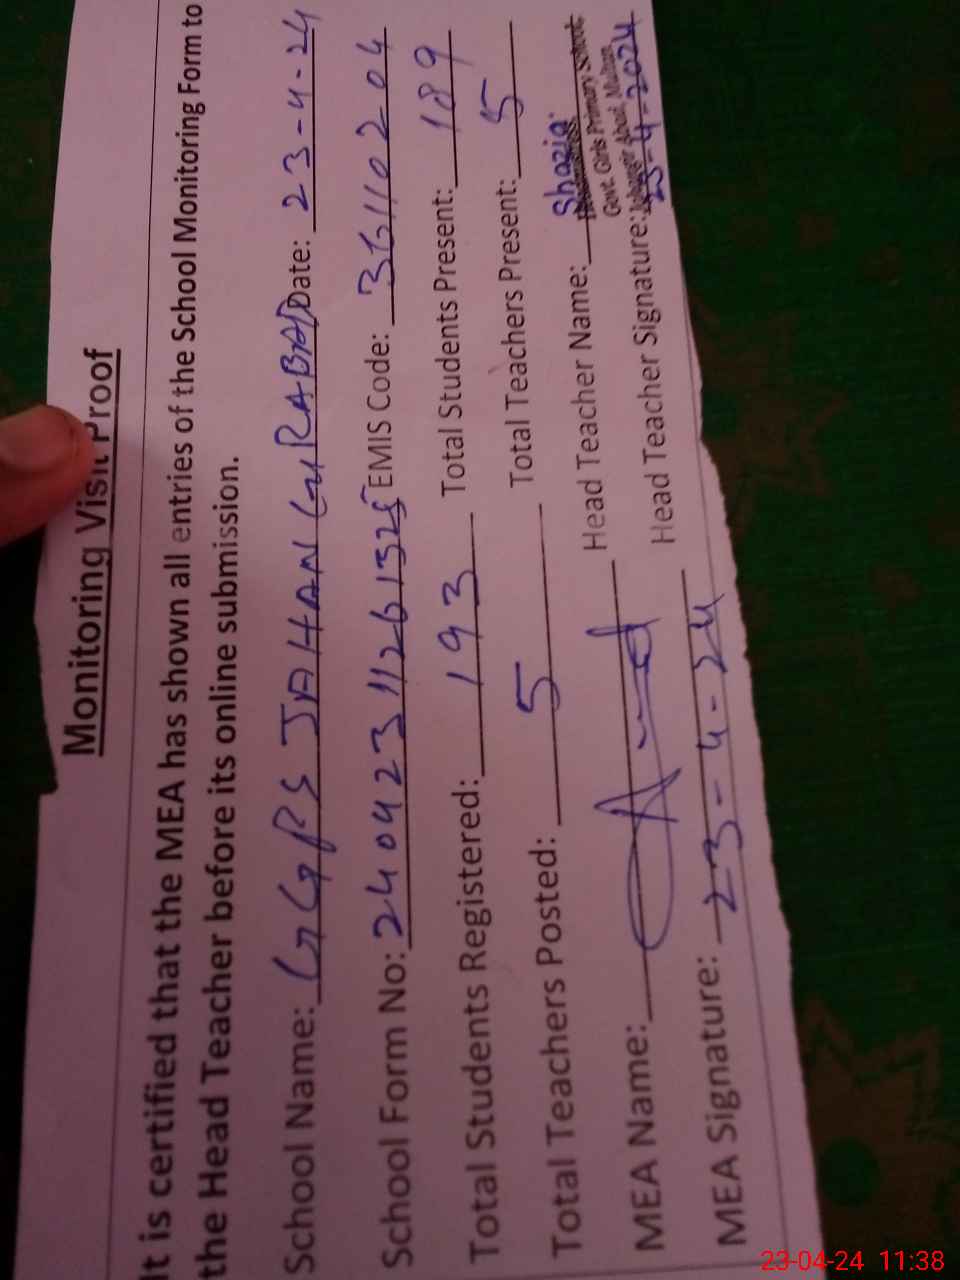 Monitoring Visit Proof
It is certified that the MEA has shown all entries of the School Monitoring Form to
the Head Teacher before its online submission.
School Name: GGPS JAHANGIRABAD Date: 23-4-24
School Form No: 24042311261325 EMIS Code: 36110204
Total Students Registered: 193 Total Students Present: 189
Total Teachers Posted: 5 Total Teachers Present: 5
MEA Name: Head Teacher Name: Shazia
Govt. Girls Primary School
MEA Signature: 23-4-24 Head Teacher Signature: Jahangir Abad, Multan
23-4-2024
23-04-24 11:38